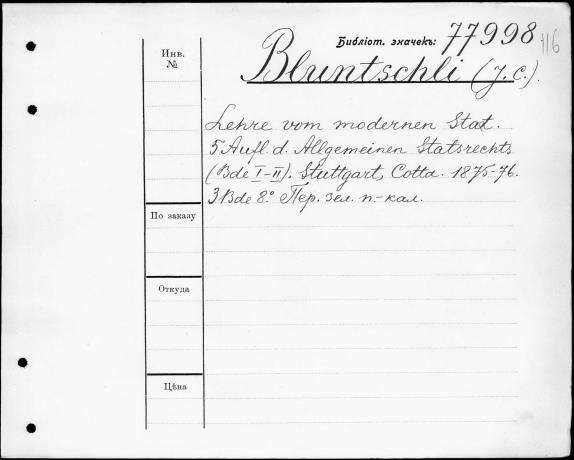 Библіот. значекъ: 77998 116
Инв. №
Bluntschli (J. C.).
Lehre vom modernen Stat.
5 Aufl. d. Allgemeinen Statsrechts
(Bde I-II). Stuttgart, Cotta. 1875-76.
3 Bde 8.° Пер. зел. п.-кал.
По заказу
Откуда
Цѣна